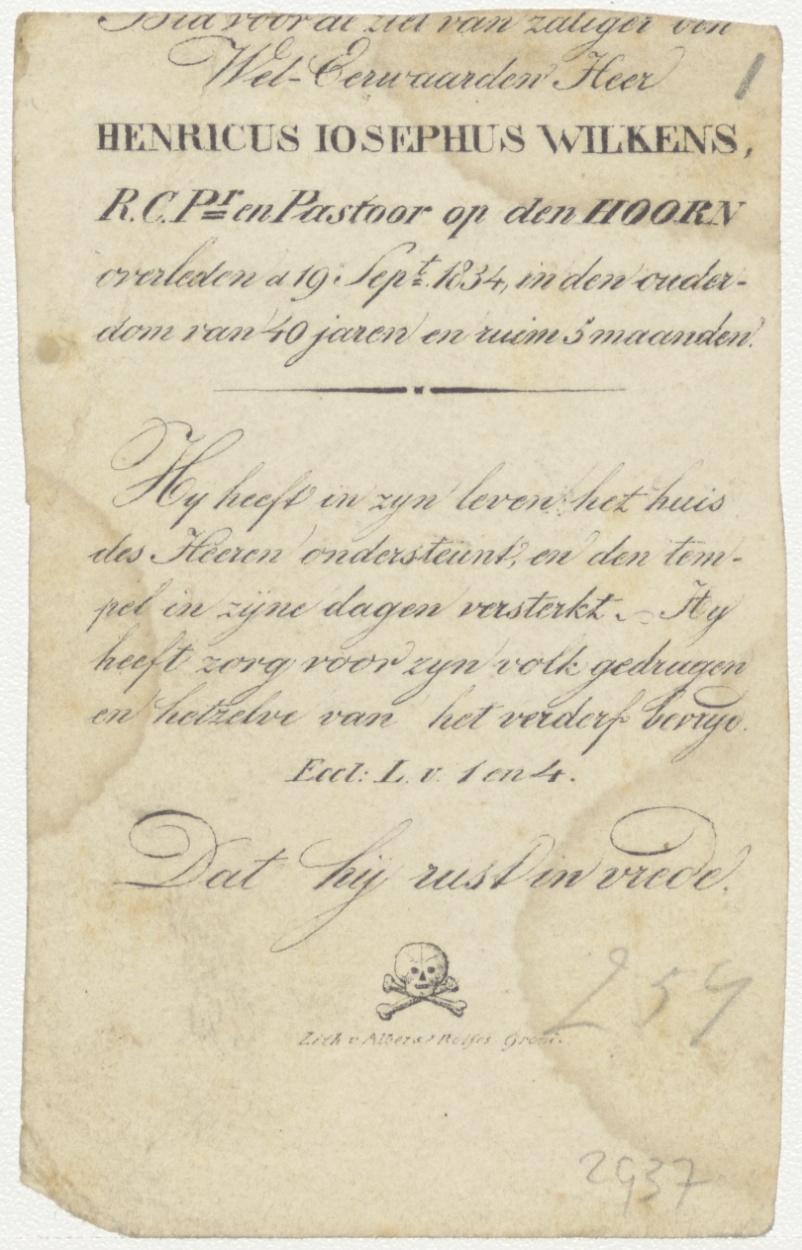 Bid voor de ziel van zaliger den
Wel-Eerwaarden Heer
HENRICUS IOSEPHUS WILKENS,
R.C. Pr en Pastoor op den HOORN
overleden d 19 Sept. 1834, in den ouder-
dom van 40 jaren en ruim 5 maanden.
Hy heeft in zyn leven het huis
des Heeren ondersteunt, en den tem-
pel in zijne dagen versterkt. Hy
heeft zorg voor zyn volk gedragen
en hetzelve van het verderf bevryd.
Eccl: L. v. 1 en 4.
Dat hij rust in vrede.
Lith v Albers Gron:
254
2937